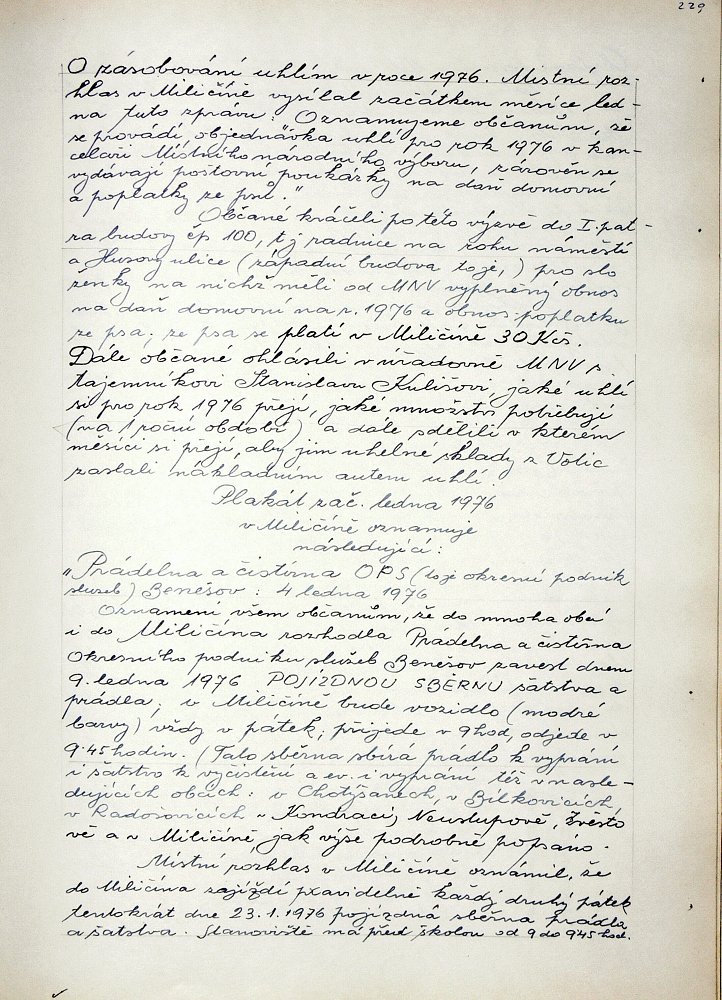 229
O zásobování uhlím v roce 1976. Místní roz-
hlas v Miličíně vysílal začátkem měsíce led-
na tuto zprávu: Oznamujeme občanům, že
se provádí objednávka uhlí pro rok 1976 v kan-
celáři Místního národního výboru, zároveň se
vydávají poštovní poukázky na daň domovní
a poplatky ze psů."
Občané kráčeli po této výzvě do I. pat-
ra budovy čp 100, tj radnice na rohu náměstí
a Husovy ulice (západní budova to je,) pro slo
ženky na nichž měli od MNV vyplněný obnos
na daň domovní na r. 1976 a obnos poplatku
ze psa; ze psa se platí v Miličíně 30 Kčs.
Dále občané ohlásili v úřadovně MNV s
tajemníkovi Stanislavu Kulišovi jaké uhlí
si pro rok 1976 přejí, jaké množství potřebují
(na 1 roční období) a dále sdělili v kterém
měsíci si přejí, aby jim uhelné sklady z Votic
zaslali nákladním autem uhlí.
Plakát zač. ledna 1976
v Miličíně oznamuje
následující:
"Prádelna a čistírna OPS (to je okresní podnik
služeb) Benešov: 4 ledna 1976
Oznamení všem občanům, že do mnoha obcí
i do Miličína rozhodla Prádelna a čistírna
Okresního podniku služeb Benešov zavést dnem
9. ledna 1976 POJÍZDNOU SBĚRNU šatstva a
prádla; v Miličíně bude vozidlo (modré
barvy) vždy v pátek; přijede v 9 hod, odjede v
9.45 hodin. (Tato sběrna sbírá prádlo k vyprání
i šatstvo k vyčistění a ev. i vyprání též v nasle-
dujících obcích: v Chotýšanech, v Bílkovicích,
v Radošovicích v Kondraci, Neustupově, Zvěsto
vě a v Miličíně, jak výše podrobně popsáno.
Místní rozhlas v Miličíně oznámil, že
do Miličína zajíždí pravidelně každý druhý pátek
tentokrát dne 23.1.1976 pojízdná sběrna prádla
a šatstva. Stanoviště má před školou od 9 do 945 hod.